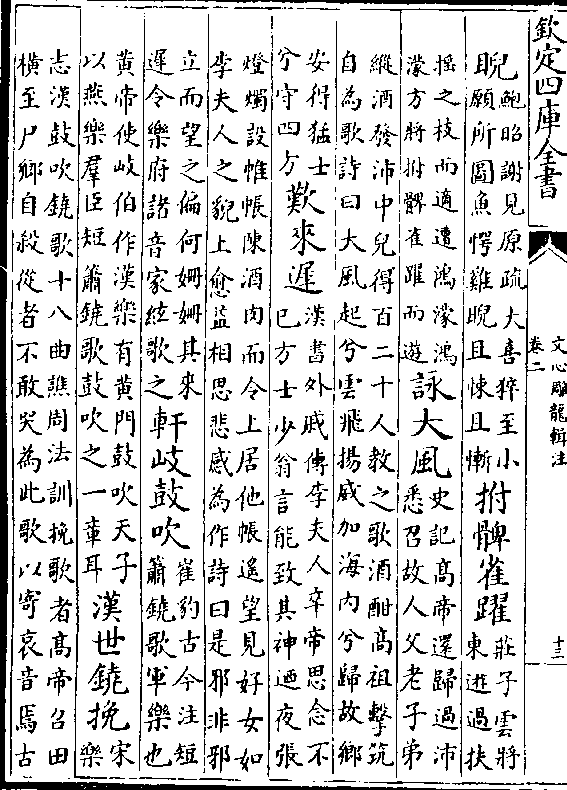 欽定四庫全書
文心雕龍輯注
卷二
十三
睨
鮑昭謝見原疏大喜猝至小
願所圖魚愕雞睨且悚且慚
拊髀雀躍
莊子雲將
東遊過扶
搖之枝而適遭鴻濛鴻
濛方將拊髀雀躍而遊
詠大風
史記高帝還歸過沛
悉召故人父老子弟
縱酒發沛中兒得百二十人教之歌酒酣高祖擊筑
自為歌詩曰大風起兮雲飛揚威加海内兮歸故鄉
安得猛士
兮守四方
歎來遲
漢書外戚傳李夫人卒帝思念不
已方士少翁言能致其神廼夜張
燈燭設帷帳陳酒肉而令上居他帳遙望見好女如
李夫人之貌上愈益相思悲感為作詩曰是邪非邪
立而望之偏何姍姍其來
遲令樂府諸音家絃歌之
軒岐鼓吹
崔豹古今注短
簫鐃歌軍樂也
黃帝使岐伯作漢樂有黃門鼓吹天子
以燕樂羣臣短簫鐃歌鼓吹之一章耳
漢世鐃挽
宋
樂
志漢鼓吹鐃歌十八曲譙周法訓挽歌者高帝召田
橫至尸鄉自殺從者不敢哭為此歌以寄哀音焉古